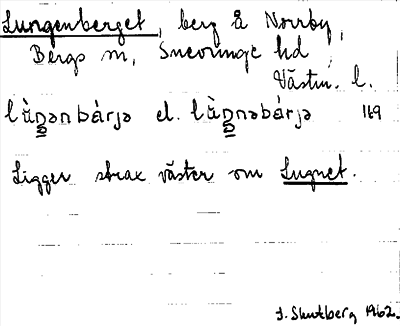 Lungenberget, berg å Norrby,
Bergs sn, Snevringe hd,
Västm. l.
lùŋənbárjə el. lùŋnəbárjə 119
Ligger strax väster om Lugnet.
J. Skutberg 1962.